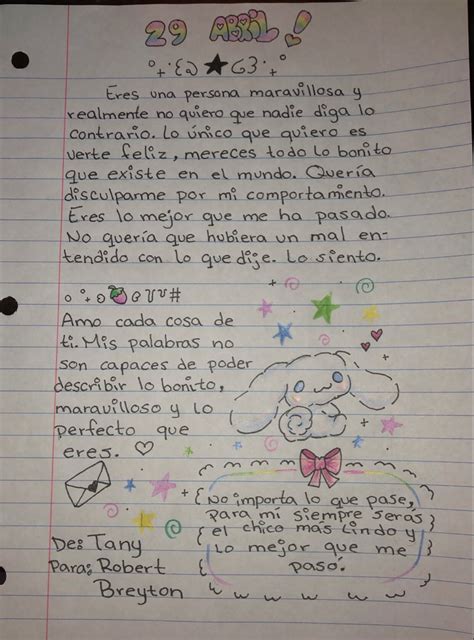 29 ABRIL!
Eres una persona maravillosa y
realmente no quiero que nadie diga lo
contrario. Lo único que quiero es
verte feliz, mereces todo lo bonito
que existe en el mundo. Quería
disculparme por mi comportamiento.
Eres lo mejor que me ha pasado.
No quería que hubiera un mal en-
tendido con lo que dije. Lo siento.
Amo cada cosa de
ti. Mis palabras no
son capaces de poder
describir lo bonito,
maravilloso y lo
perfecto que
eres. ♡
No importa lo que pase,
para mí siempre serás
el chico más lindo y
lo mejor que me
pasó.
De: Tany
Para: Robert
Breyton